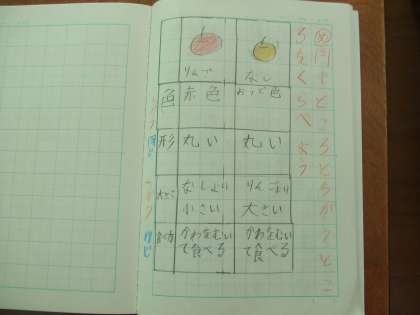 め同じところとちがうところ
をくらべよう
りんご
なし
色
赤色
おうど色
形
丸い
丸い
大きさ
なしより
小さい
りんごより
大きい
食べ方
かわをむい
て食べる
かわをむい
て食べる
同じ
同じ